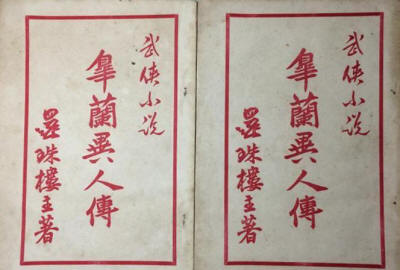 武俠小说
臯蘭異人傳
還珠樓主著
武俠小说
臯蘭異人傳
還珠樓主著